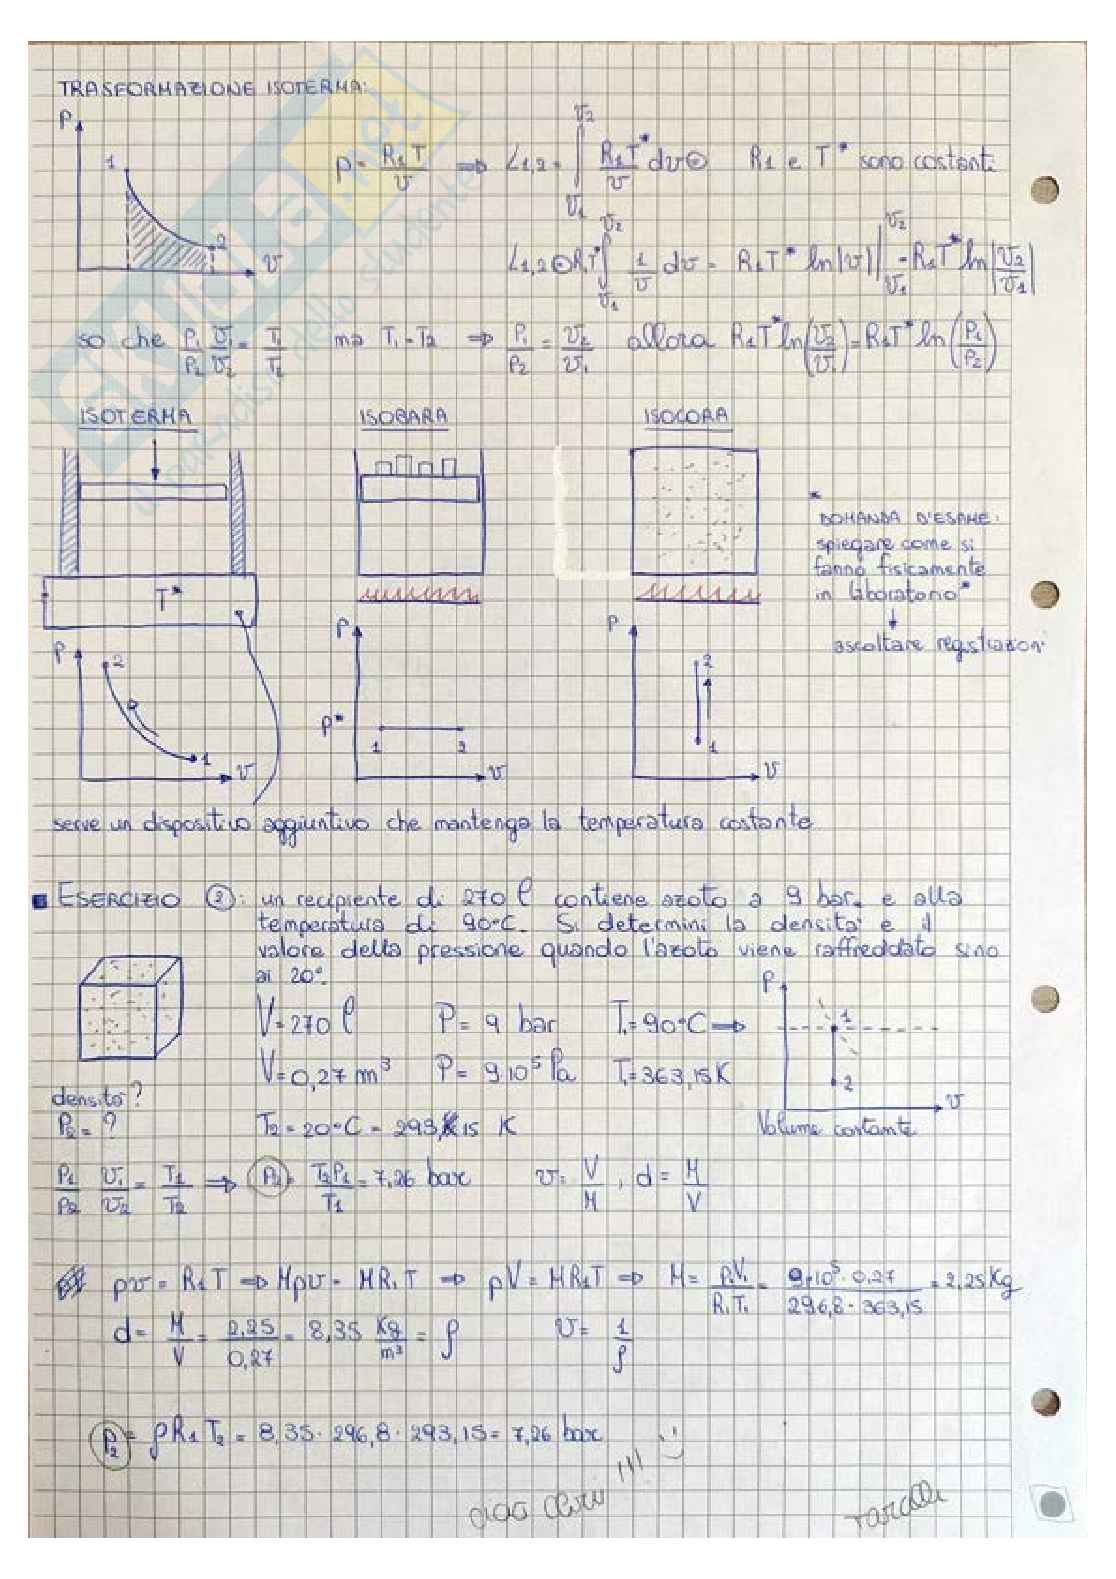 TRASFORMAZIONE ISOTERMA:
P
1
2
v
p = R₁T/v ⇒ L₁,₂ = ∫_{v₁}^{v₂} R₁T*/v dv ⊖ R₁ e T* sono costanti
L₁,₂ ⊖ R₁T* ∫_{v₁}^{v₂} 1/v dv = R₁T* ln|v| |_{v₁}^{v₂} = R₁T* ln|v₂/v₁|
so che P₁/P₂ v₁/v₂ = T₁/T₂ ma T₁ = T₂ ⇒ P₁/P₂ = v₂/v₁ allora R₁T* ln(v₂/v₁) = R₁T* ln(P₁/P₂)
ISOTERMA ISOBARA ISOCORA
T*
* DOMANDA D'ESAME:
spiegare come si
fanno fisicamente
in laboratorio*
↓
ascoltare registrazioni
P 2 1 v
P P* 1 2 v
P 2 1 v
serve un dispositivo aggiuntivo che mantenga la temperatura costante
ESERCIZIO ②: un recipiente di 270 l contiene azoto a 9 bar, e alla
temperatura di 90°C. Si determini la densità e il
valore della pressione quando l'azoto viene raffreddato sino
ai 20°.
V = 270 l P = 9 bar T₁ = 90°C ⇒
V = 0,27 m³ P = 9·10⁵ Pa T₁ = 363,15 K
P 1 2 v
densità?
P₂ = ? T₂ = 20°C = 293,15 K Volume costante
P₁/P₂ v₁/v₂ = T₁/T₂ ⇒ P₂ = T₂P₁/T₁ = 7,26 bar v = V/M , d = M/V
pv = R₁T ⇒ Mpv = MR₁T ⇒ pV = MR₁T ⇒ M = P₁V₁/R₁T₁ = 9·10⁵·0,27/296,8·363,15 = 2,25 Kg
d = M/V = 2,25/0,27 = 8,35 Kg/m³ = ρ v = 1/ρ
P₂ = ρR₁T₂ = 8,35 · 296,8 · 293,15 = 7,26 bar
ciao !!! :)